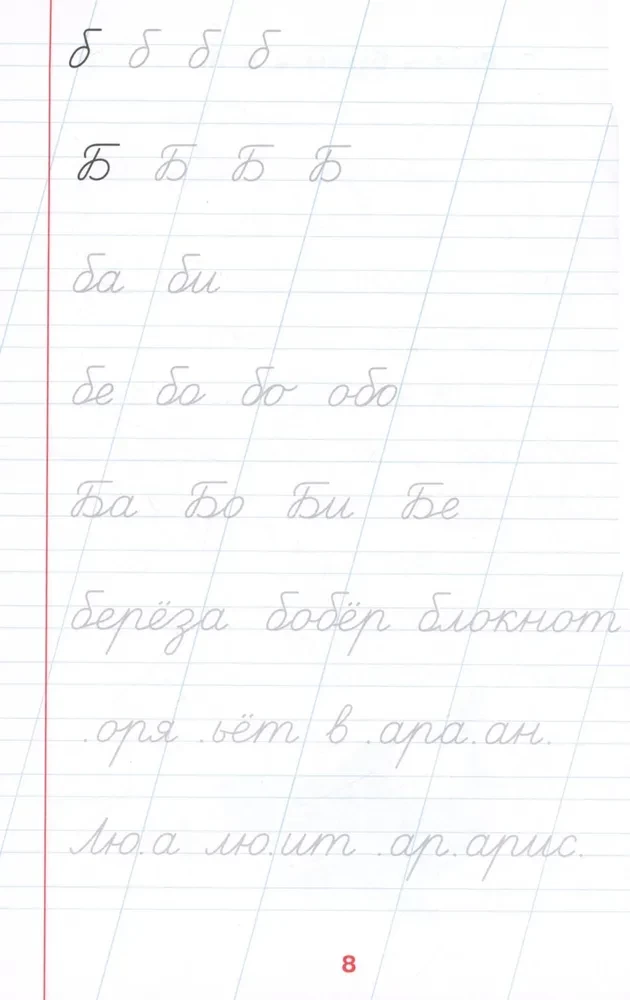 б б б б
Б Б Б Б
ба би
бе бо бо обо
Ба Бо Би Бе
берёза бобёр блокнот
.оря .ьёт в .ара.ан.
Лю.а лю.ит .ар.арис.
8